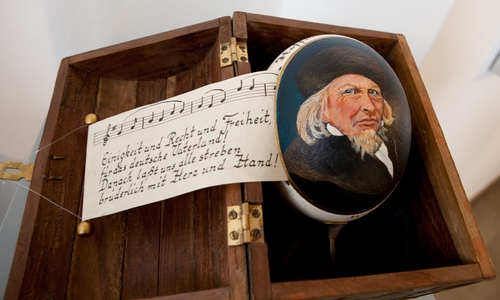 Einigkeit und Recht und Freiheit,
für das deutsche Vaterland!
Danach laßt uns alle streben
brüderlich mit Herz und Hand!